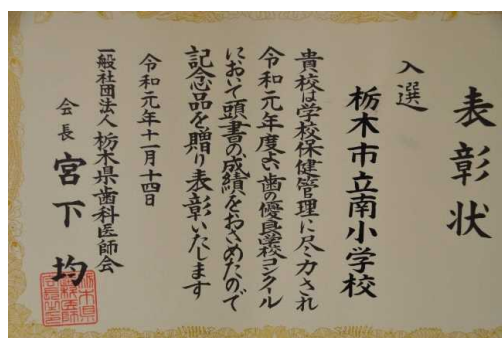 表彰状
入選
栃木市立南小学校
貴校は学校保健管理に尽力され
令和元年度よい歯の優良学校コンクール
において頭書の成績をおさめたので
記念品を贈り表彰いたします
令和元年十一月十四日
一般社団法人 栃木県歯科医師会
会長 宮下均